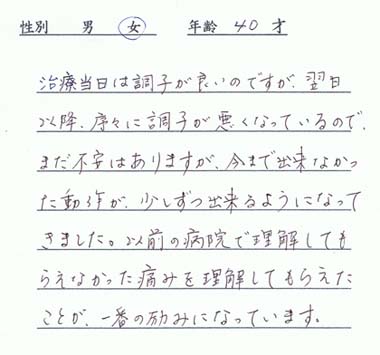 性別 男 女 年齢 40 才
治療当日は調子が良いのですが、翌日
以降、序々に調子が悪くなっているので、
まだ不安はありますが、今まで出来なかっ
た動作が、少しずつ出来るようになって
きました。以前の病院で理解しても
らえなかった痛みを理解してもらえた
ことが、一番の励みになっています。